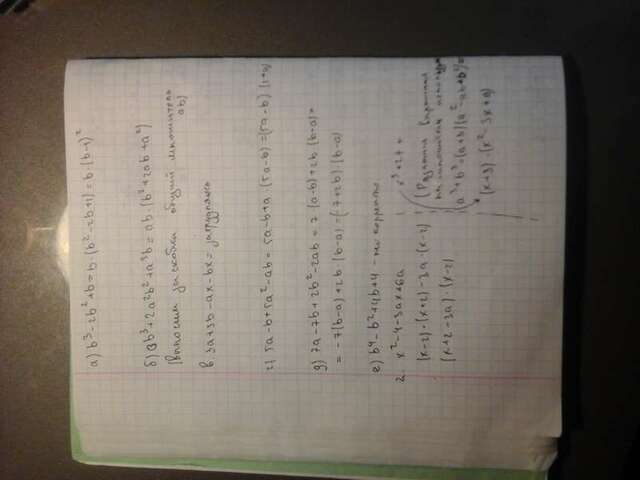 а) b³-2b²+b=b·(b²-2b+1)=b·(b-1)²
б) ab³+2a²b²+a³b=ab·(b²+2ab+a²)
(выносим за скобки общий множитель
ab)
в. 3a+3b-ax-bx= затрудняюсь
г) 5a-b+5a²-ab=5a-b+a·(5a-b)=(5a-b)·(1+a)
д) 7a-7b+2b²-2ab=7·(a-b)+2b·(b-a)=
=-7(b-a)+2b·(b-a)=(-7+2b)·(b-a)
е) b⁴-b²+4b+4 - не корректно
2. x²-4-3ax+6a
(x-2)·(x+2)-3a·(x-2)
(x+2-3a)·(x-2)
x³+27=
(Разложим выражение
на множители используя
a³+b³=(a+b)(a²-ab+b²)=
(x+3)·(x²-3x+9)